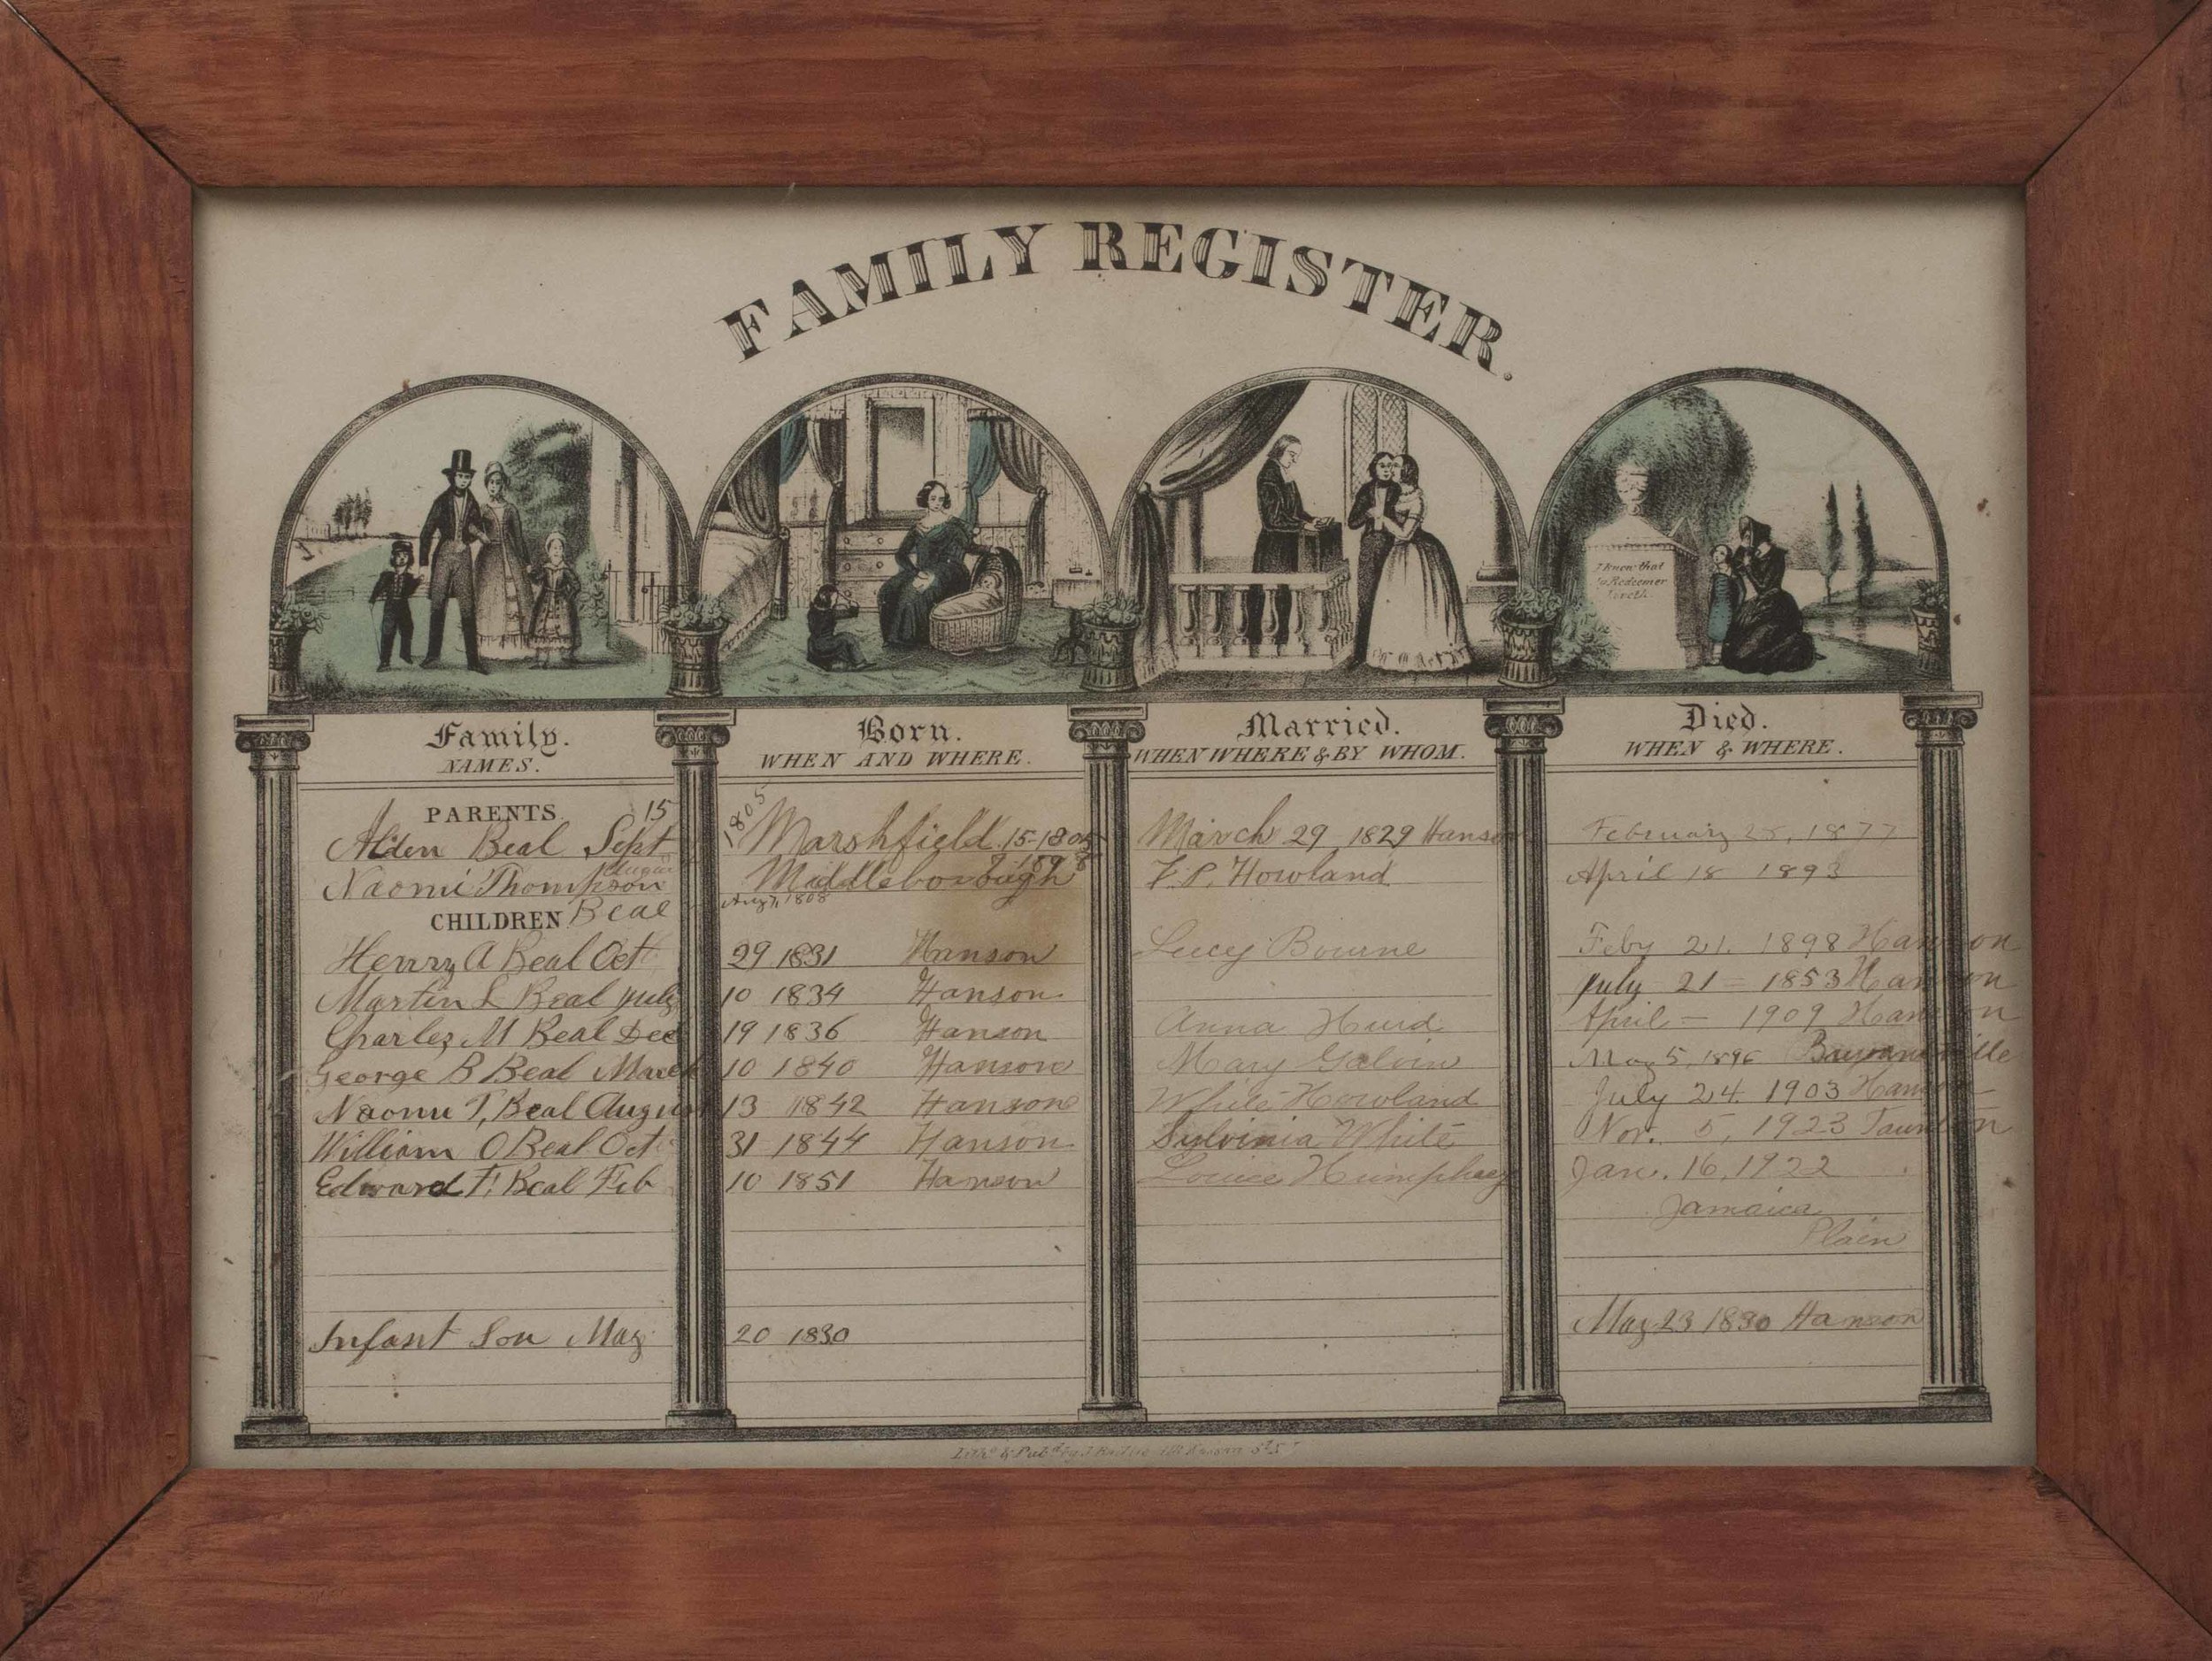 FAMILY REGISTER.
I know that
Redeemer
liveth.
Family. Born. Married. Died.
NAMES. WHEN AND WHERE. WHEN WHERE & BY WHOM. WHEN & WHERE.
PARENTS 15 1805
Alden Beal Sept Marshfield 15-1805 March 29, 1829 Hanson February 25, 1877
Naomi Thompson Middleborough F. P. Howland April 18 1893
Aug 7, 1808
CHILDREN Beal
Henry A Beal Oct 29 1831 Hanson Lucy Bourne Feby 21. 1898 Hanson
Martin L Beal July 10 1834 Hanson July 21 - 1853 Hanson
Charles M Beal Dec 19 1836 Hanson Anna Hurd April - 1909 Hanson
George B Beal March 10 1840 Hanson Mary Galvin May 5, 1896
Naomi T, Beal August 13 1842 Hanson White Howland July 24. 1903 Hanson
William O Beal Oct 31 1844 Hanson Sylvinia White Nov. 5, 1923 Taunton
Edward F. Beal Feb 10 1851 Hanson Louise Humphrey Jan. 16, 1922
Jamaica
Plain
Infant Son May 20 1830 May 23 1830 Hanson
Litho & Pubd by J Baillie